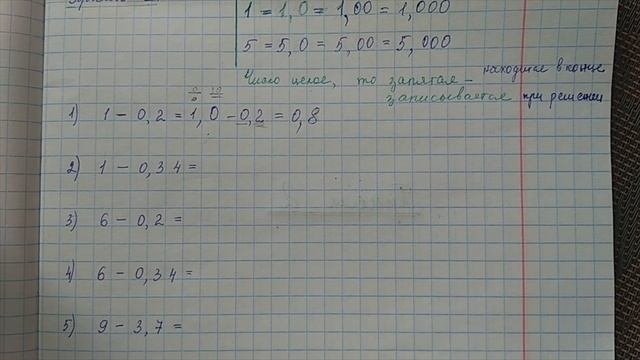 1 = 1,0 = 1,00 = 1,000
5 = 5,0 = 5,00 = 5,000
Число целое, то запятая – находится в конце
записывается при решении
1) 1 – 0,2 = 1,0 – 0,2 = 0,8
2) 1 – 0,34 =
3) 6 – 0,2 =
4) 6 – 0,34 =
5) 9 – 3,7 =